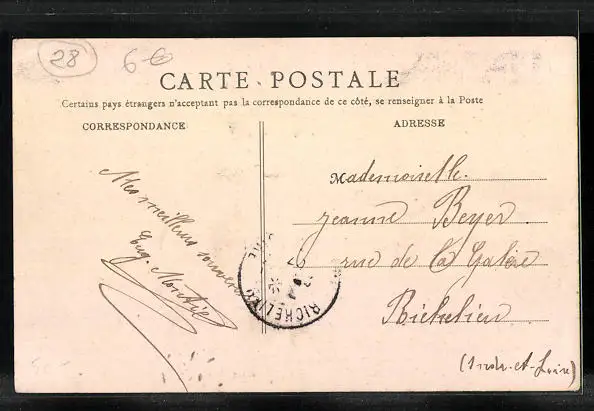 28
6-€
CARTE POSTALE
Certains pays étrangers n'acceptant pas la correspondance de ce côté, se renseigner à la Poste
CORRESPONDANCE
ADRESSE
Mes meilleurs souvenirs
Eug.
Mademoiselle.
Jeanne Beyer
rue de la Galère
Richelieu
(Indre-et-Loire)
RICHELIEU